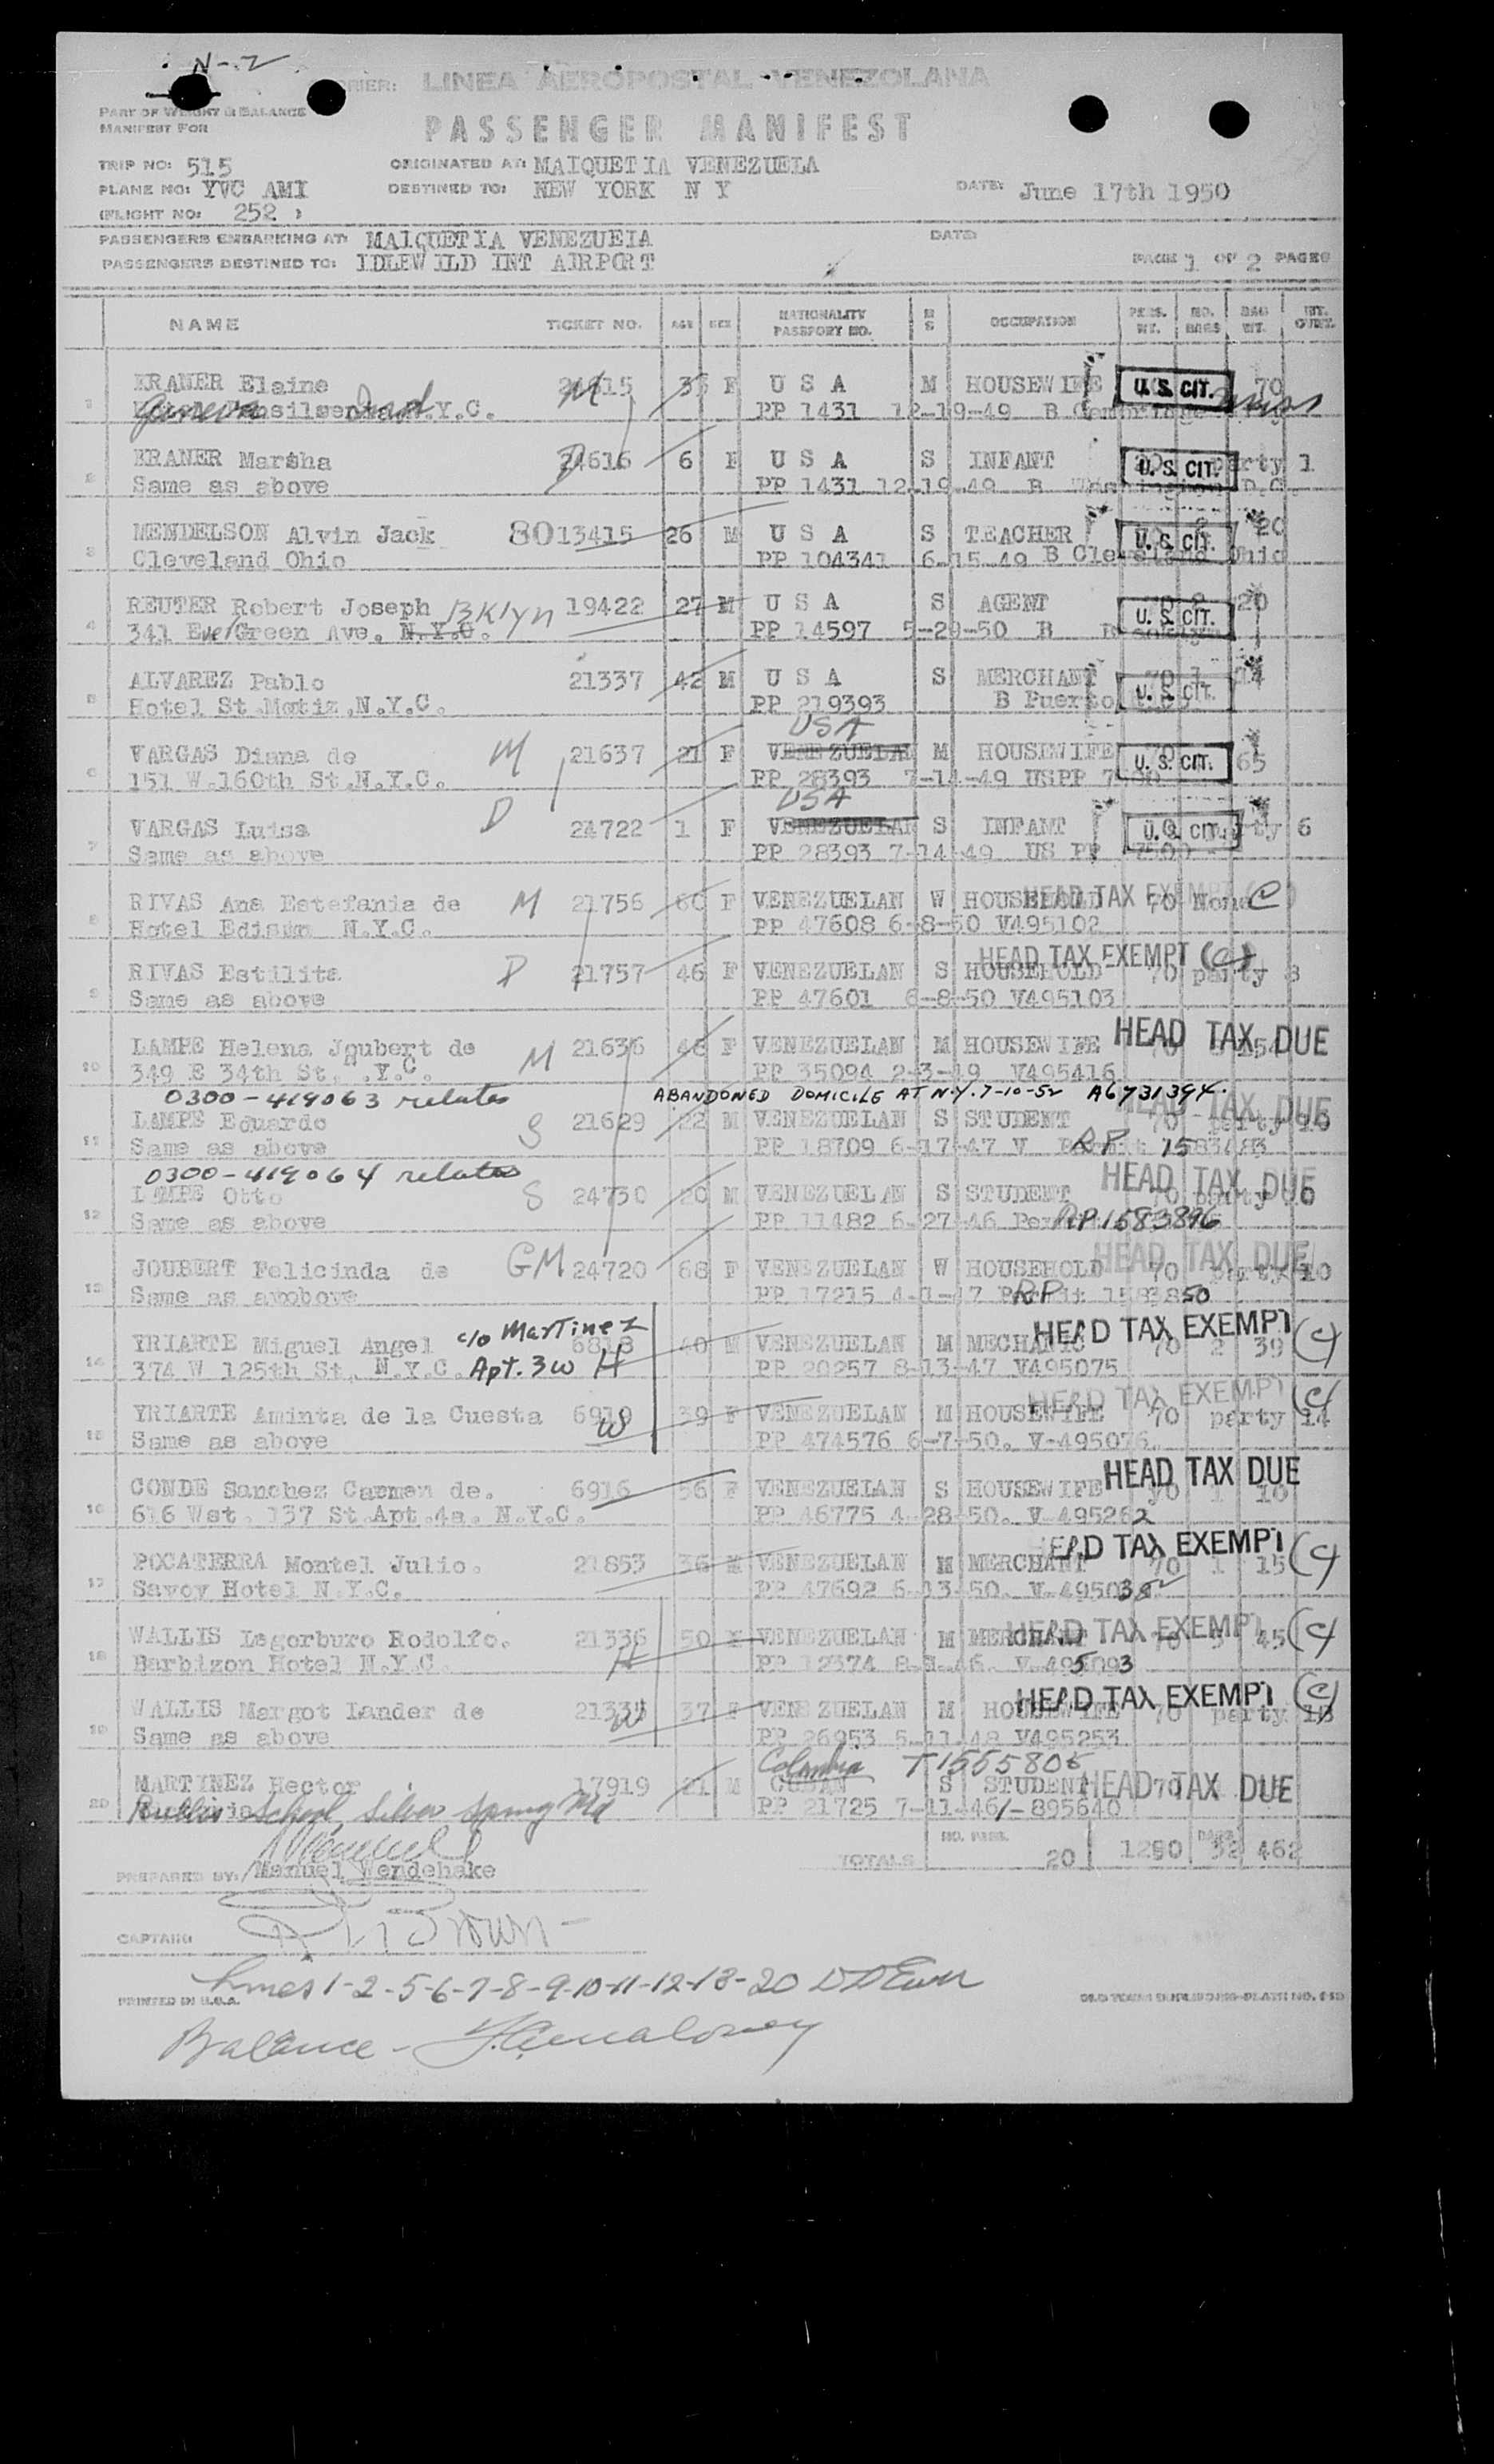 N-2
LINEA AEROPOSTAL VENEZOLANA
PART OF WEIGHT & BALANCE
MANIFEST FOR
PASSENGER MANIFEST
TRIP NO: 515 ORIGINATED AT: MAIQUETIA VENEZUELA
PLANE NO: YVC AMI DESTINED TO: NEW YORK N Y DATE: June 17th 1950
(FLIGHT NO: 252 )
PASSENGERS EMBARKING AT: MAIQUETIA VENEZUEIA DATE:
PASSENGERS DESTINED TO: IDLEWILD INT AIRPORT PAGE 1 OF 2 PAGES
NAME TICKET NO. AGE SEX NATIONALITY PASSPORT NO. M S OCCUPATION PERS. WT. NO. BAGS BAG WT.
1 Elaine M F U S A M HOUSEWIFE U.S. CIT. 70
Geneva N.Y.C. PP 1431 12-19-49 B Cambridge
2 Marsha 24616 6 F U S A S INFANT U.S. CIT. party 1
Same as above PP 1431 12-19-49 B Washington D.C.
3 MENDELSON Alvin Jack 8013415 26 M U S A S TEACHER U.S. CIT. 20
Cleveland Ohio PP 104341 6-15-49 B Cleveland Ohio
4 REUTER Robert Joseph Bklyn 19422 27 M U S A S AGENT U.S. CIT. 20
341 EverGreen Ave. N.Y.C. PP 14597 5-29-50 B
5 ALVAREZ Pablo 21337 42 M U S A S MERCHANT 70 1 U.S. CIT.
Hotel St Matiz,N.Y.C. PP 219393 B Puerto
USA
6 VARGAS Diana de M 21637 21 F VENEZUELAN M HOUSEWIFE U.S. CIT. 65
151 W.160th St.N.Y.C. PP 28393 7-14-49 USPP
USA
7 VARGAS Luisa D 24722 1 F VENEZUELAN S INFANT U.S. CIT. party 6
Same as above PP 28393 7-14-49 US PP
8 RIVAS Ana Estefania de M 21756 60 F VENEZUELAN W HOUSEHOLD HEAD TAX EXEMPT 70 None (C)
Hotel Edison N.Y.C. PP 47608 6-8-50 V495102
HEAD TAX EXEMPT (C)
9 RIVAS Estilita D 21757 46 F VENEZUELAN S HOUSEHOLD 70 party 8
Same as above PP 47601 6-8-50 V495103
10 LAMPE Helena Joubert de M 21636 48 F VENEZUELAN M HOUSEWIFE HEAD TAX DUE
349 E 34th St. N.Y.C. PP 35094 2-3-49 V495416
0300-419063 relates ABANDONED DOMICILE AT N.Y. 7-10-52 A6731394.
11 LAMPE Eduardo S 21629 22 M VENEZUELAN S STUDENT HEAD TAX DUE 70 party 10
Same as above PP 18709 6-17-47 V RP 1583483
0300-419064 relates
12 LAMPE Otto S 24730 20 M VENEZUELAN S STUDENT HEAD TAX DUE 70 party 10
Same as above PP 11482 6-27-46 RP 1583896
13 JOUBERT Felicinda de GM 24720 68 F VENEZUELAN W HOUSEHOLD HEAD TAX DUE 70 party 10
Same as avobove PP 17215 4-1-47 RP 1583850
14 YRIARTE Miguel Angel c/o Martinez 6818 40 M VENEZUELAN M MECHANIC HEAD TAX EXEMPT 70 2 39 (C)
374 W 125th St. N.Y.C. Apt. 3W H PP 20257 8-13-47 V495075
HEAD TAX EXEMPT (C)
15 YRIARTE Aminta de la Cuesta 6919 W 39 F VENEZUELAN M HOUSEWIFE 70 party 14
Same as above PP 474576 6-7-50. V-495076
16 CONDE Sanchez Carmen de. 6916 56 F VENEZUELAN S HOUSEWIFE HEAD TAX DUE 70 1 10
616 Wst. 137 St.Apt.4a. N.Y.C. PP 46775 4-28-50. V-495262
17 POCATERRA Montel Julio. 21853 36 M VENEZUELAN M MERCHANT HEAD TAX EXEMPT 70 1 15 (C)
Savoy Hotel N.Y.C. PP 47692 6-13-50. V-495038
18 WALLIS Legorburo Rodolfo. 21336 50 M VENEZUELAN M MERCHANT HEAD TAX EXEMPT 70 3 45 (C)
Barbizon Hotel N.Y.C. H PP 12374 V-495093
19 WALLIS Margot Lander de 21335 W 37 F VENEZUELAN M HOUSEWIFE HEAD TAX EXEMPT (C) 70 party 18
Same as above PP 26953 5-11-48 V495253
Colombia T1555805
20 MARTINEZ Hector 17919 21 M CUBAN S STUDENT HEAD TAX DUE 70
Bullis School, Silver Spring Md PP 21725 7-11-46 1-895640
TOTALS NO. PASS. 20 1290 BAGS 32 462
PREPARED BY: Manuel Wendehake
CAPTAIN: Brown
Lines 1-2-5-6-7-8-9-10-11-12-13-20
PRINTED IN U.S.A.
Balance -